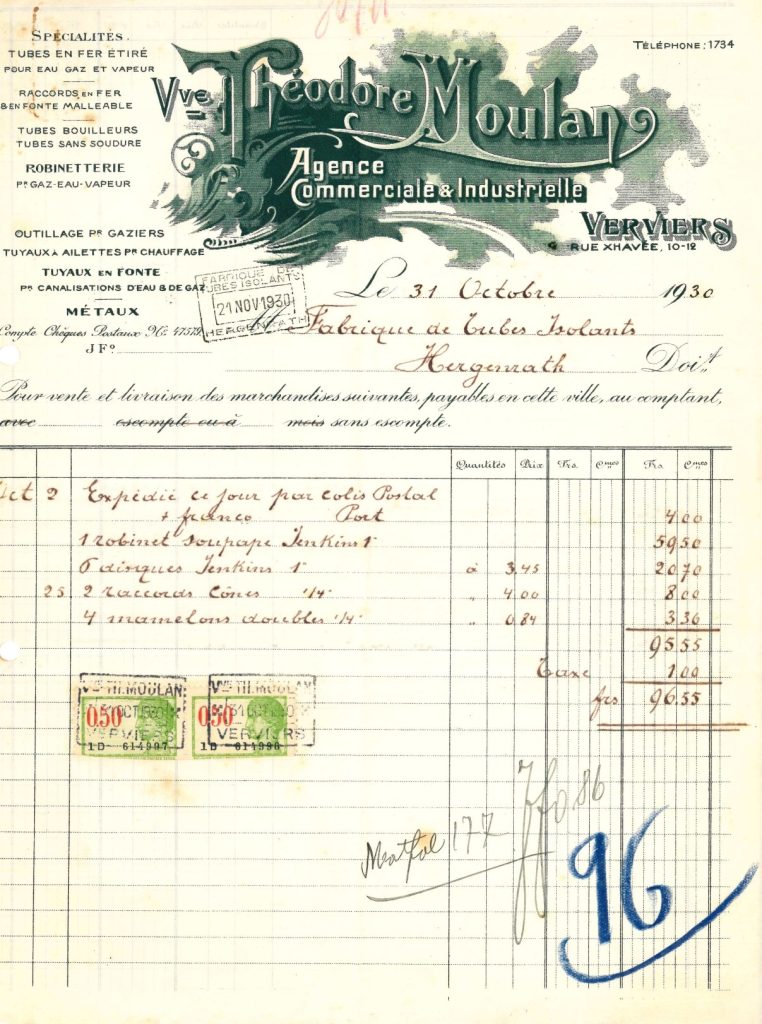 SPÉCIALITÉS.
TUBES EN FER ÉTIRÉ
POUR EAU GAZ ET VAPEUR
RACCORDS EN FER
& EN FONTE MALLEABLE
TUBES BOUILLEURS
TUBES SANS SOUDURE
ROBINETTERIE
Pr GAZ-EAU-VAPEUR
OUTILLAGE Pr GAZIERS
TUYAUX À AILETTES Pr CHAUFFAGE
TUYAUX EN FONTE
Pr CANALISATIONS D'EAU & DE GAZ
MÉTAUX
Compte Chèques Postaux No 47579
J Fo
TÉLÉPHONE: 1734
Vve Théodore Moulan
Agence
Commerciale & Industrielle
VERVIERS
RUE XHAVÉE, 10-12
FABRIQUE DE
TUBES ISOLANTS
21 NOV 1930
HERGENRATH
Le 31 Octobre 1930
M Fabrique de Tubes Isolants
Hergenrath Doit
Pour vente et livraison des marchandises suivantes, payables en cette ville, au comptant,
avec escompte ou à mois sans escompte.
Quantités Prix Frs Cmes Frs Cmes
Oct 2 Expédié ce jour par colis Postal
+ franco Port 4 00
1 robinet soupape Jenkins 1" 59 50
6 disques Jenkins 1" à 3.45 20 70
25 2 raccords Cônes 1/4" " 4.00 8 00
4 mamelons doubles 1/4" " 0.84 3 36
95 55
Taxe 1 00
frs 96.55
Vve TH. MOULAN
31 OCT 1930
VERVIERS
0,50
1D 614997
Vve TH. MOULAN
31 OCT 1930
VERVIERS
0,50
1D 614996
177
86
96